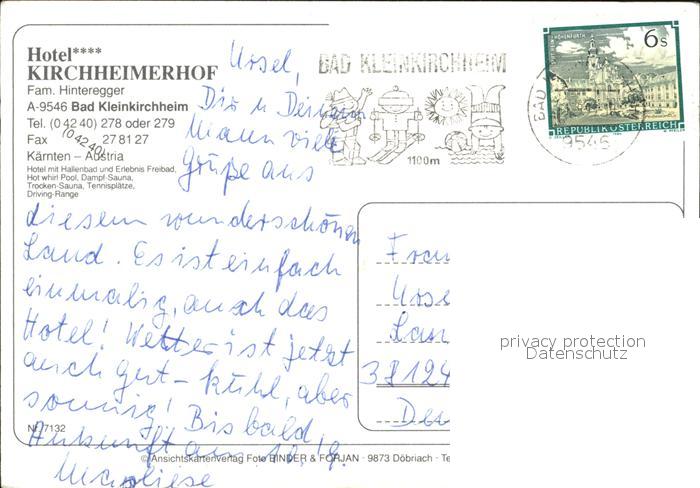 Hotel****
KIRCHHEIMERHOF
Fam. Hinteregger
A-9546 Bad Kleinkirchheim
Tel. (0 42 40) 278 oder 279
Fax (0 42 40) 27 81 27
Kärnten – Austria
Hotel mit Hallenbad und Erlebnis Freibad,
Hot whirl Pool, Dampf-Sauna,
Trocken-Sauna, Tennisplätze,
Driving-Range
BAD KLEINKIRCHHEIM
1100m
BAD
9546
6 S
REPUBLIK ÖSTERREICH
Ursel,
Dir u Deinem
Mann viele
Grüße aus
diesem wunderschönen
Land. Es ist einfach
einmalig, auch das
Hotel! Wetter ist jetzt
auch gut – kühl, aber
sonnig! Bis bald,
Ankunft am 10. 19.
Marliese
Frau
Urse
Lan
38124
Deu
privacy protection
Datenschutz
Nr. 7132
© Ansichtskartenverlag Foto BINDER & FORJAN - 9873 Döbriach - Te